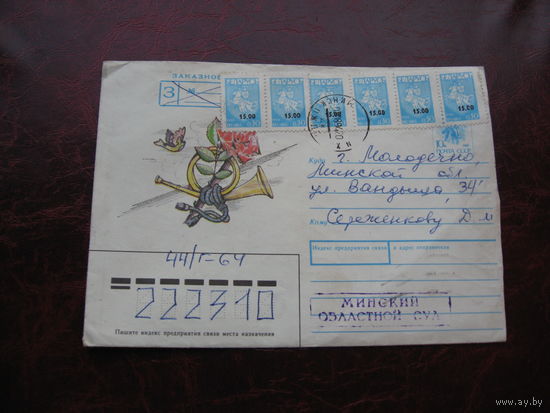 ЗАКАЗНОЕ
З №
15.00 15.00 15.00 15.00 15.00 15.00
ПОЧТА СССР
Куда г. Молодечно,
Минской обл
ул. 34
Кому Сереженкову Д. М
Индекс предприятия связи и адрес отправителя
44/г-64
222310
Пишите индекс предприятия связи места назначения
МИНСКИЙ
ОБЛАСТНОЙ СУД
www.ay.by